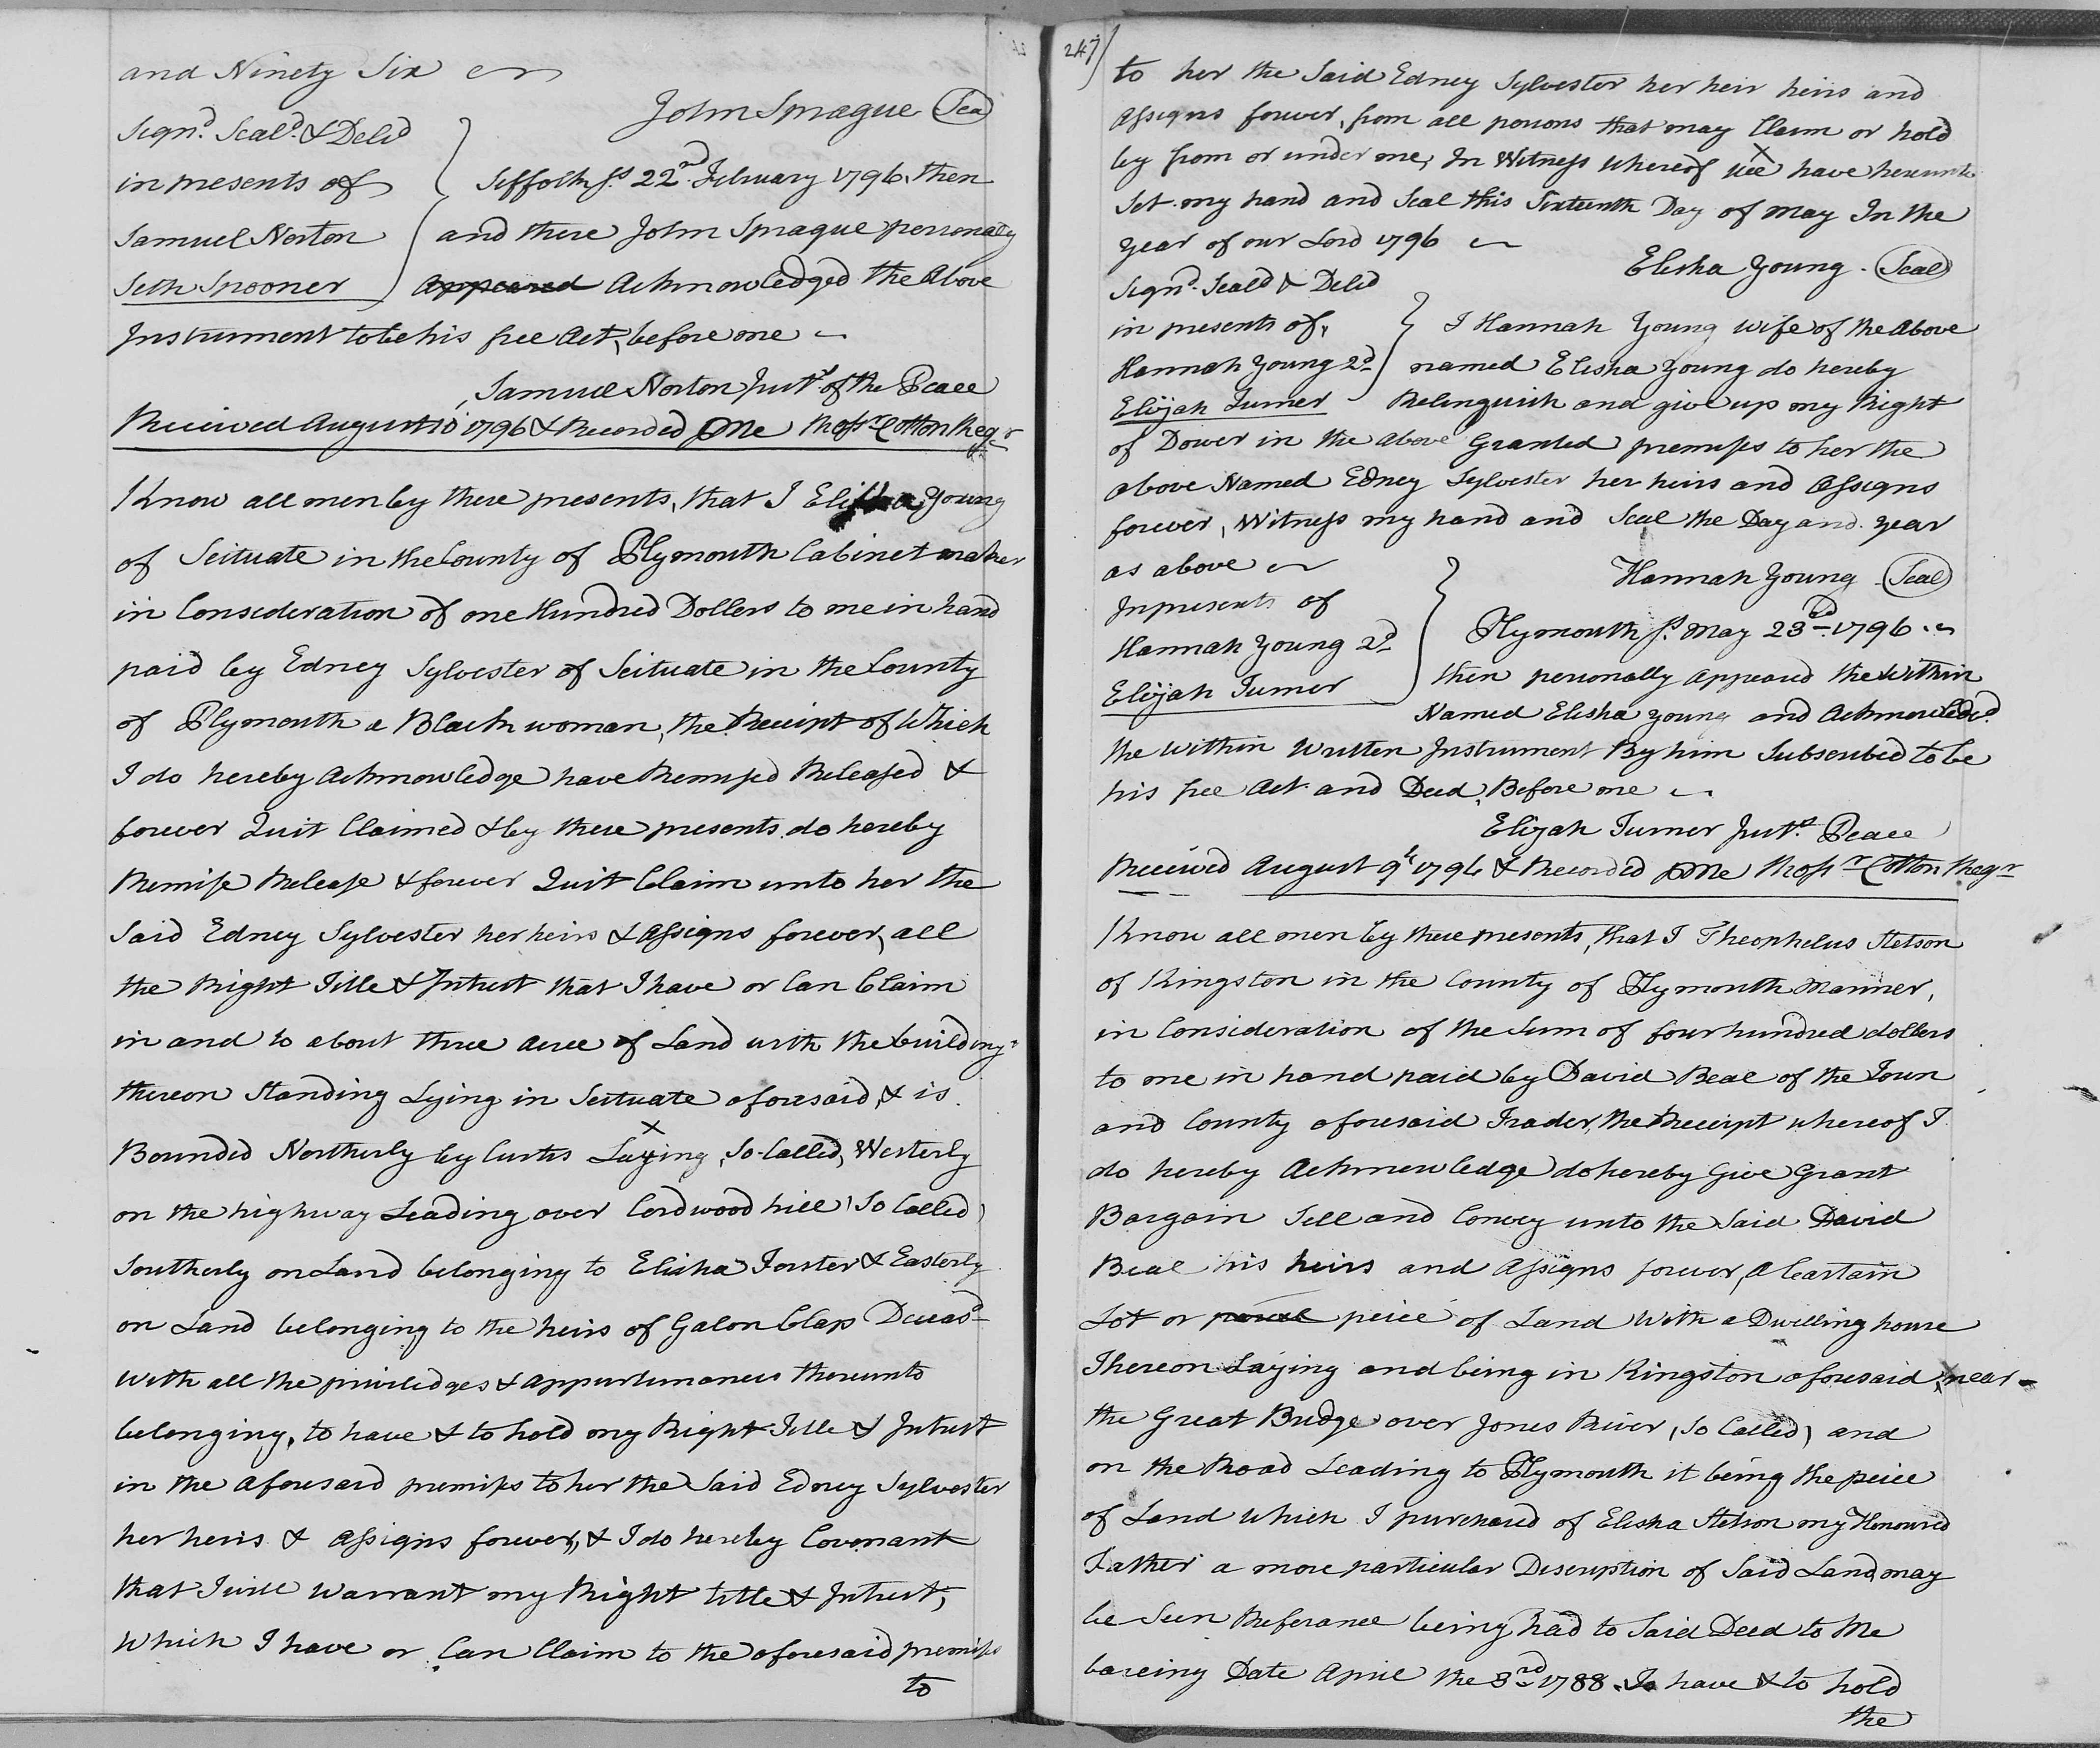 and Ninety Six
John Sprague Seal
Signd. Seald. & Deld
in presents of
Samuel Norton
Seth Spooner
Suffolk ss. 22nd. February 1796. then
and there John Sprague personally
appeared Acknowledged the Above
Instrument to be his free Act, before me
Samuel Norton Justs. of the Peace
Received August 10 1796 & Recorded p Me Rossr. Cotton Regr
Know all men by these presents, that I Elisha Young
of Scituate in the County of Plymouth Cabinet maker
in Consideration of one Hundred Dollers to me in hand
paid by Edney Sylvester of Scituate in the County
of Plymouth a Black woman, the Receipt of Which
I do hereby Acknowledge have Remised Released &
forever Quit Claimed & by these presents do hereby
Remise Release & forever Quit Claim unto her the
Said Edney Sylvester her heirs & Assigns forever, all
the Right Title & Intrest that I have or Can Claim
in and to about three acree of Land with the buildings
thereon Standing Lying in Scituate aforesaid, & is
x
Bounded Northerly by Curtis Laying, So-Called, Westerly
on the highway Leading over Cordwood hill (So Called)
Southerly on Land belonging to Elisha Foster & Easterly
on Land belonging to the heirs of Galon Clap Deceasd
with all the priviledges & appurtenances thereunto
belonging, to have & to hold my Right Title & Intrest
in the aforesaid premises to her the Said Edney Sylvester
her heirs & Assigns forever, & I do hereby Covenant
that I will Warrant my Right title & Intrest,
Which I have or Can Claim to the aforesaid premises
to
247
to her the Said Edney Sylvester her heir heirs and
Assigns forever, from all persons that may Claim or hold
x
by from or under me, In Witness Whereof we have hereunto
Set my hand and Seal this Sixteenth Day of May In the
year of our Lord 1796
Elisha Young. Seal
Signd. Seald & Deld
in presents of,
Hannah Young 2d
Elijah Turner
I Hannah Young wife of the Above
named Elisha Young do hereby
Relinquish and give up my Right
of Dower in the above Granted premises to her the
above Named Edney Sylvester her heirs and Assigns
forever, Witness my hand and Seal the Day and year
as above
Hannah Young Seal
In presents of
Hannah Young 2d
Elijah Turner
Plymouth ss. May 23rd. 1796
then personally appeared the within
Named Elisha Young and Acknowledgd.
the within Written Instrument By him Subscribed to be
his free Act and Deed, Before me
Elijah Turner Justs. Peace
Received August 9th 1796 & Recorded p Me Rossr Cotton Regr
Know all men by these presents, that I Theophelus Stetson
of Kingston in the County of Plymouth Mariner,
in Consideration of the Sum of four hundred dollers
to me in hand paid by David Beal of the Town
and County aforesaid Trader, the Receipt whereof I
do hereby Acknowledge do hereby Give Grant
Bargain Sell and Convey unto the Said David
Beal his heirs and Assigns forever, a Ceartain
Lot or parcel peice of Land With a Dwelling house
Thereon Laying and being in Kingston aforesaid, near
the Great Bridge over Jones River, (So Called) and
on the Road Leading to Plymouth it being the peice
of Land which I purchased of Elisha Stetson my Honoured
Father a more particular Description of Said Land may
be Seen Referance being had to Said Deed to Me
bareing Date April the 3rd 1788. To have & to hold
the